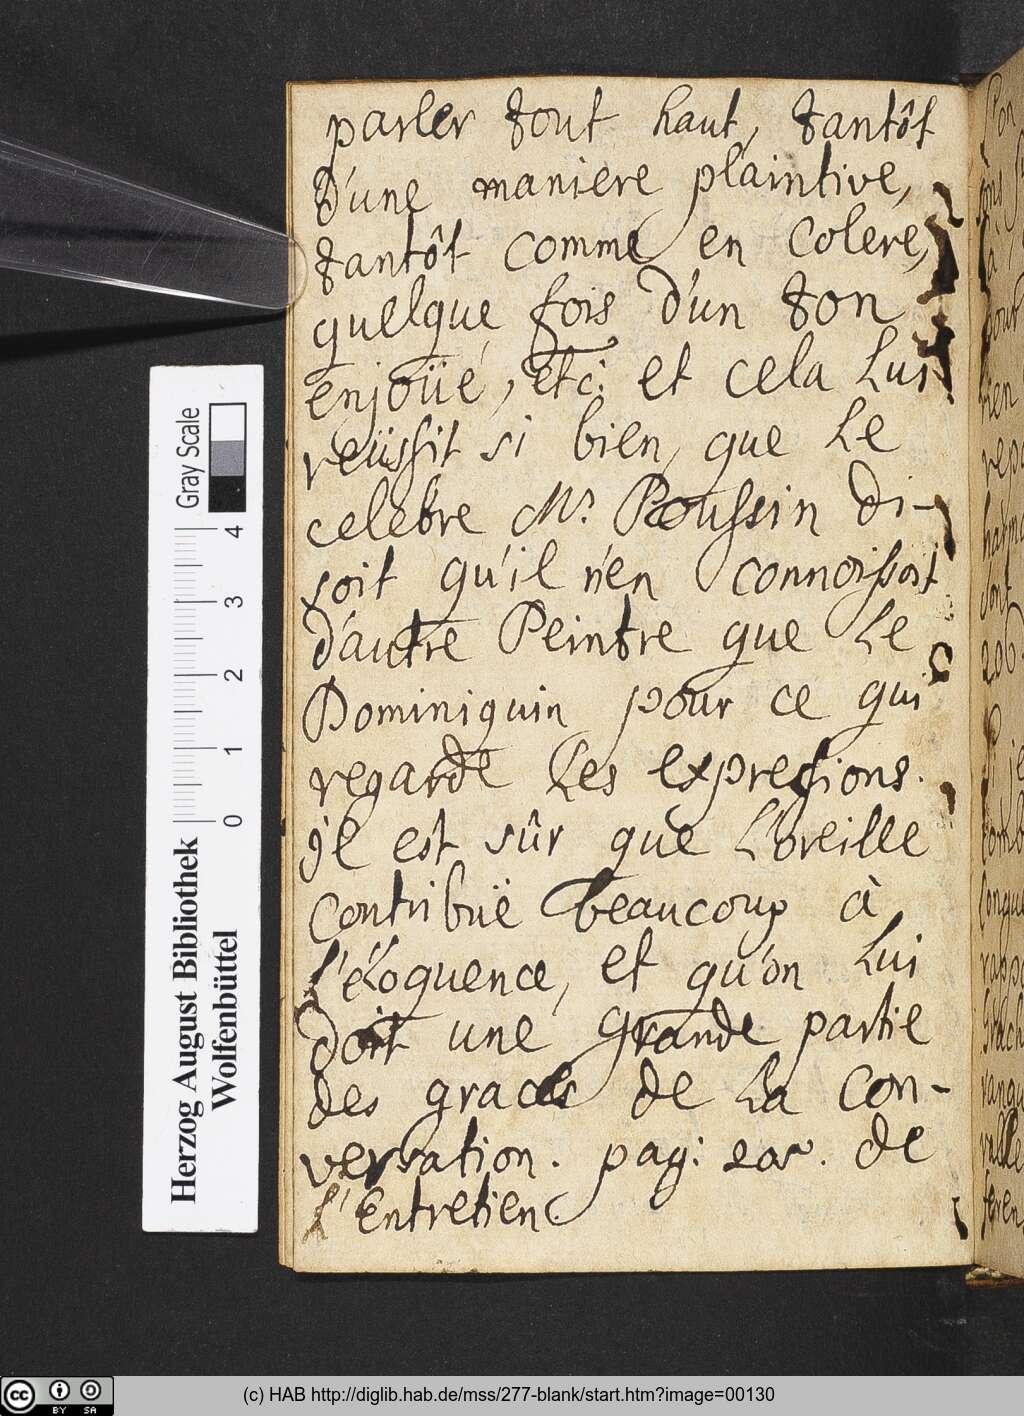 parler tout haut, tantôt
d'une maniere plaintive,
tantôt comme en colere,
quelque fois d'un ton
enjoüé, etc: et cela lui
reüssit si bien, que le
celebre Mr. Poussin di-
soit qu'il n'en connoissoit
d'autre Peintre que le
Dominiquin pour ce qui
regarde les expressions.
il est sûr que l'oreille
contribuë beaucoup à
l'éloquence, et qu'on lui
doit une grande partie
des graces de la con-
versation. pag: de
l'Entretien.
Gray Scale
4
3
2
1
0
Herzog August Bibliothek
Wolfenbüttel
cc BY SA
(c) HAB http://diglib.hab.de/mss/277-blank/start.htm?image=00130